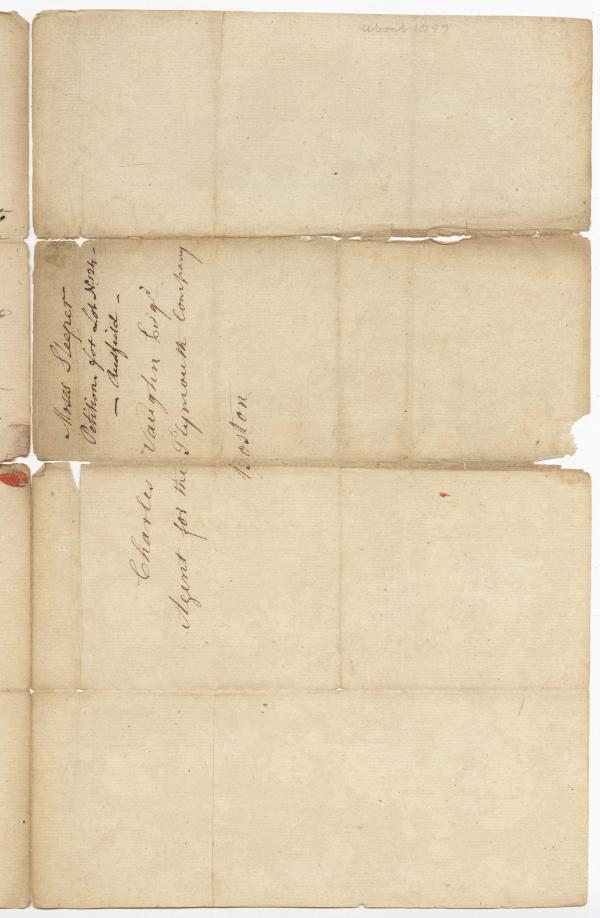 about 1789
Moses Sleeper
Petition for Lot No 124 -
- Readfield -
Charles Vaughn Esqr
Agent for the Plymouth Company
Boston